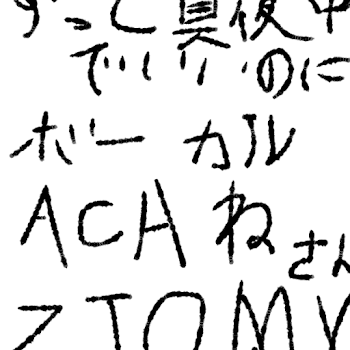 ずっと真夜中
でいいのに
ボーカル
ACAね さん
ZTOMY